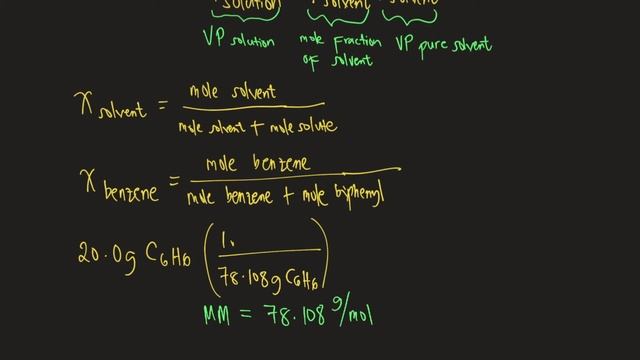 solution solvent
VP solution mole fraction VP pure solvent
of solvent
X solvent = mole solvent
mole solvent + mole solute
X benzene = mole benzene
mole benzene + mole biphenyl
20.0g C6H6 ( 1.
78.108g C6H6 )
MM = 78.108 g/mol